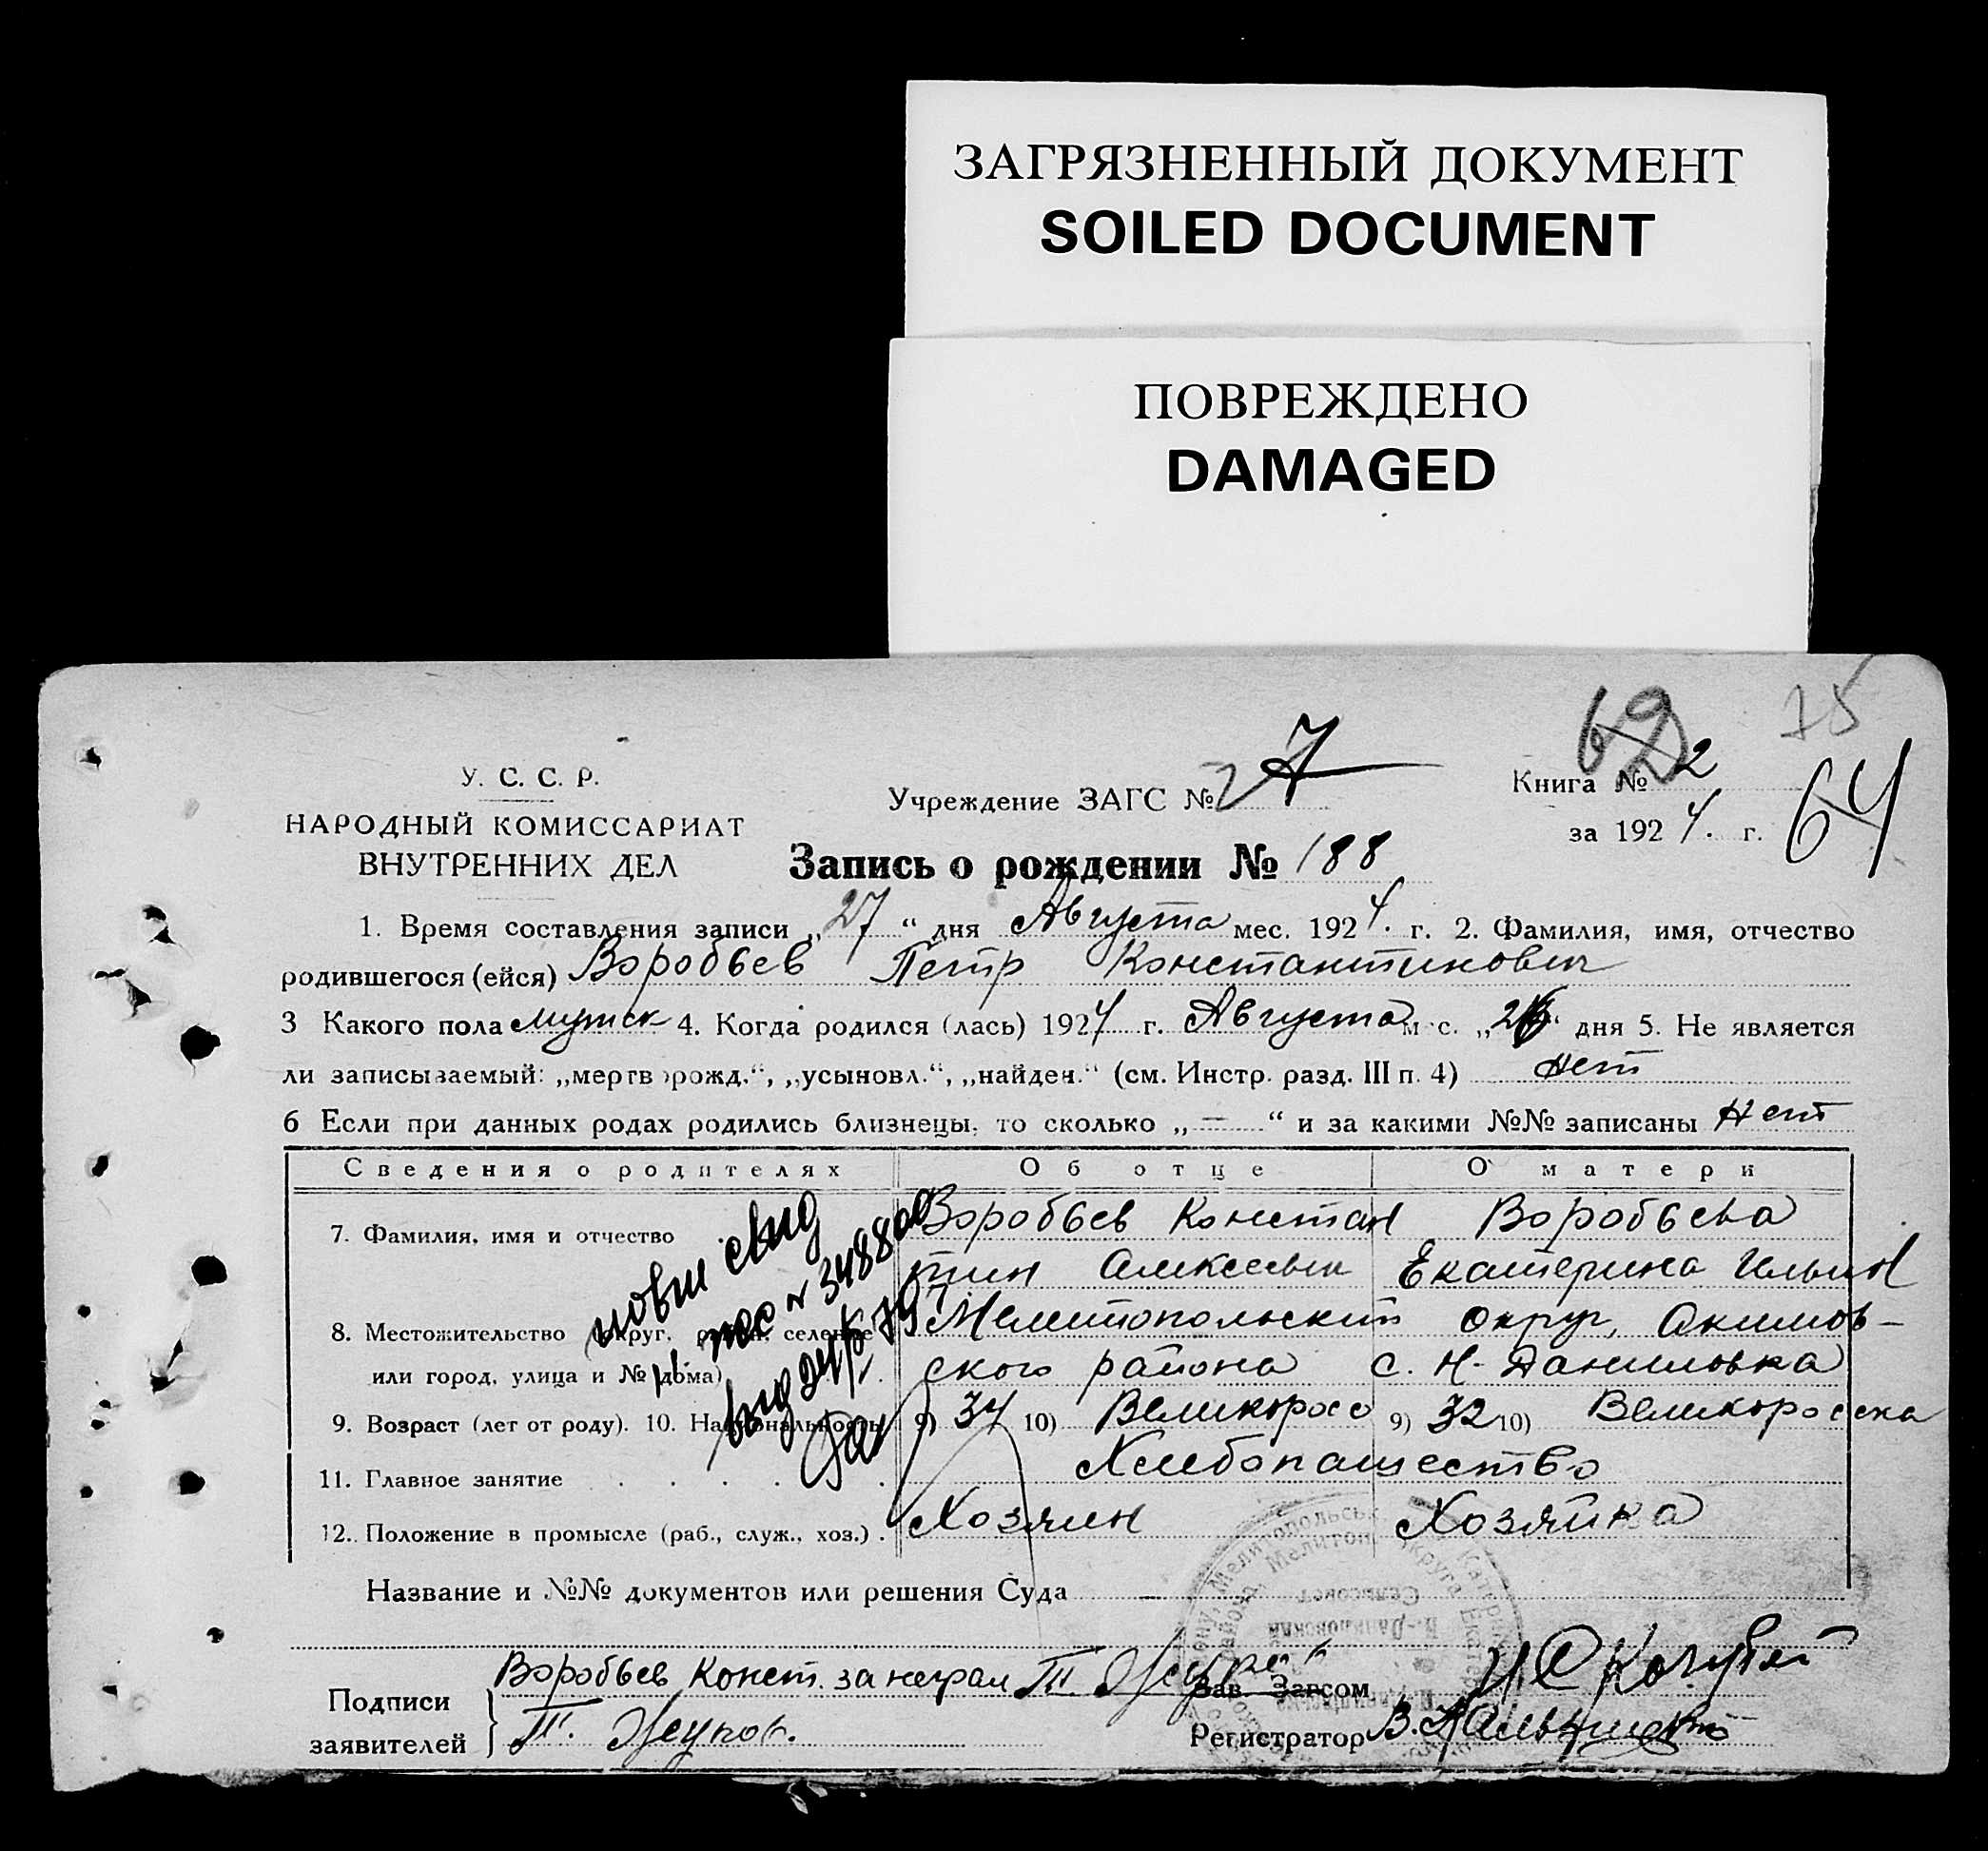 ЗАГРЯЗНЕННЫЙ ДОКУМЕНТ
SOILED DOCUMENT
ПОВРЕЖДЕНО
DAMAGED
75
62
64
У. С. С. Р.
НАРОДНЫЙ КОМИССАРИАТ
ВНУТРЕННИХ ДЕЛ
Учреждение ЗАГС № 27
Книга № 2
за 1924. г.
Запись о рождении № 188
1. Время составления записи „27“ дня Августа мес. 1924. г. 2. Фамилия, имя, отчество
родившегося (ейся) Воробьев Петр Константинович
3 Какого пола мужск 4. Когда родился (лась) 1924 г. Августа мес. „ “ дня 5. Не является
ли записываемый: „мертворожд.“, „усыновл.“, „найден.“ (см. Инстр. разд. III п. 4) нет
6 Если при данных родах родились близнецы, то сколько „—“ и за какими №№ записаны Нет
Сведения о родителях Об отце О матери
7. Фамилия, имя и отчество Воробьев Констан Воробьева
тин Алексеевич Екатерина Ильин
8. Местожительство округ, район, селение Мелитопольский округ, Акимов-
или город, улица и № дома) ского района с. Н-Даниловка
9. Возраст (лет от роду). 10. Национальность 9) 34 10) Великоросс 9) 32 10) Великоросска
11. Главное занятие Хлебопашество
12. Положение в промысле (раб., служ., хоз.) Хозяин Хозяйка
Название и №№ документов или решения Суда —
Подписи заявителей
Воробьев Конст. за неграм
Зав. Загсом
Регистратор В.